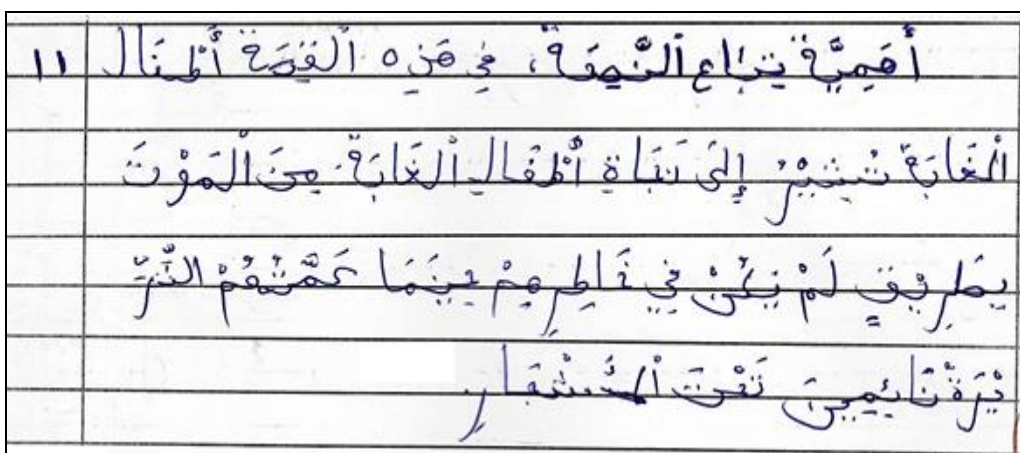 ١١ أَهَمِيَّةُ تِبَاعِ النَّصِيحَةِ، فِي هَذِهِ الْقِصَّةِ أَطْفَال
الْغَابَةِ تُشِيْرُ إِلَى نَجَاةِ أَطْفَالِ الْغَابَةِ مِنَ الْمَوْتِ
بِطَرِيْقٍ لَمْ يَكُنْ فِي خَاطِرِهِمْ حِيْنَمَا عَمَّتْهُمْ النَّزّ
نَائِمِيْنَ تَحْتَ الْأَشْجَارِ